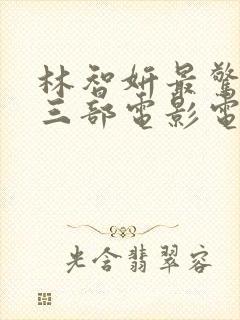 林智妍最驚
三部電影電
光含翡翠容